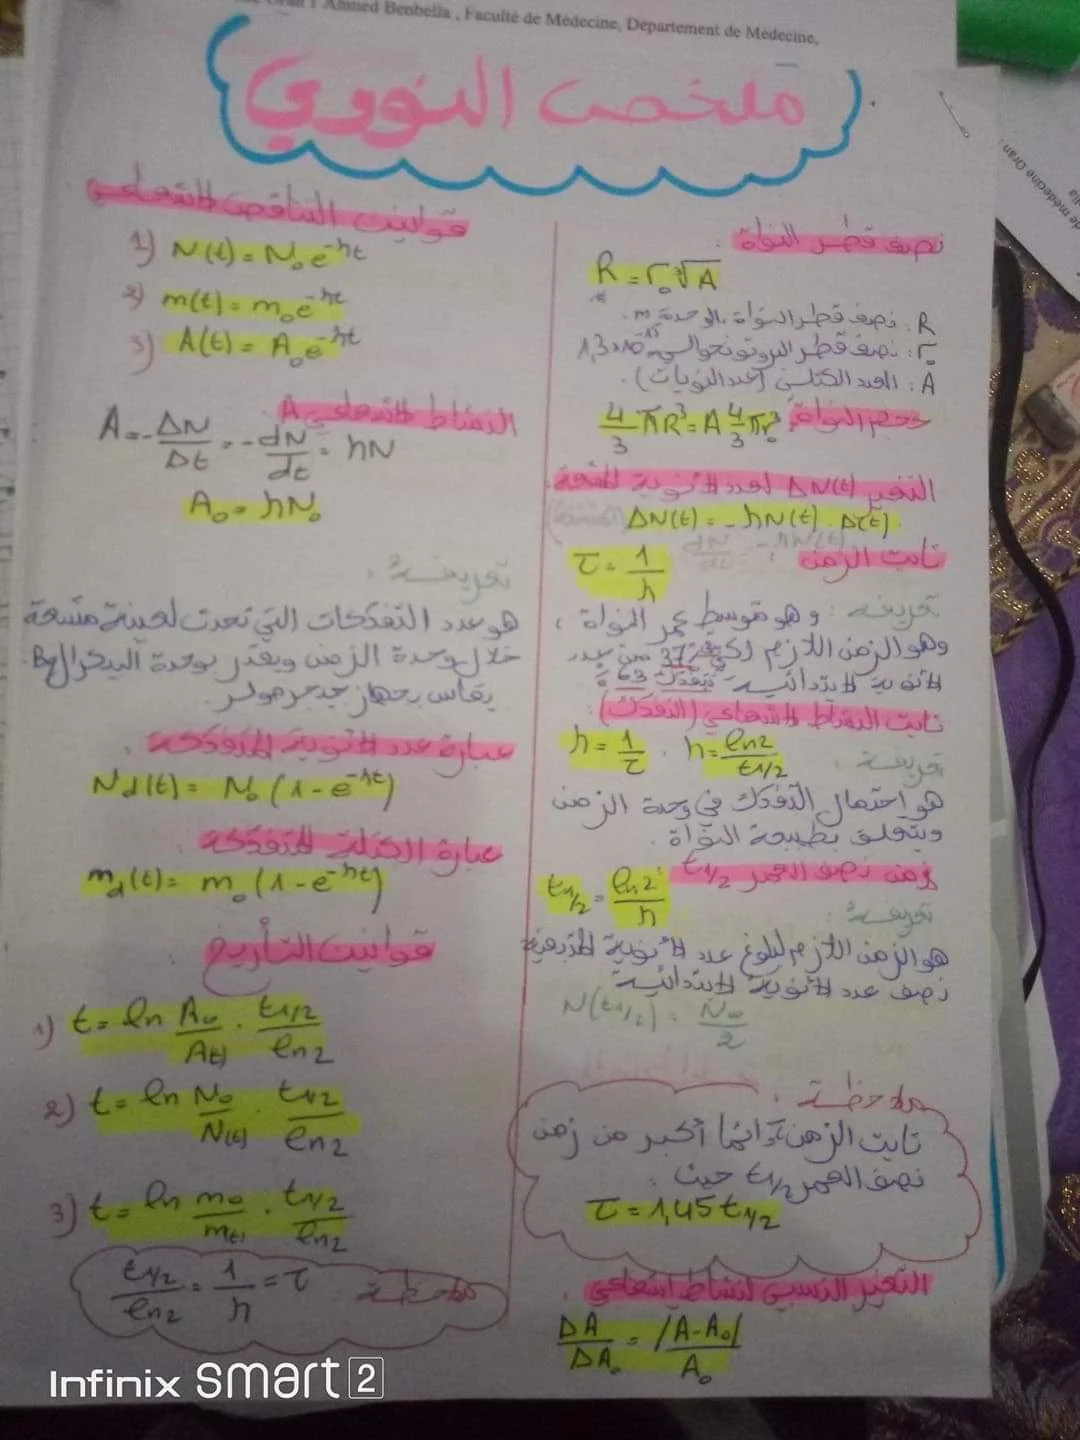 Oran 1 Ahmed Benbella , Faculté de Médecine, Departement de Médecine,
ملخص النووي
نصف قطر النواة :
R = r₀ ∛A
R : نصف قطر النواة، الوحدة m.
r₀ : نصف قطر البروتون حوالي 1,3×10⁻¹⁵
A : العدد الكتلي (عدد النويات).
حجم النواة: 4/3 πR³ = A 4/3 πr₀³
التغير ΔN(t) لعدد الأنوية المشعة
ΔN(t) = - λN(t) . Δ(t).
dN/dt = -λN(t)
ثابت الزمن :
τ = 1/λ
تعريفه : وهو متوسط عمر النواة ،
وهو الزمن اللازم لكي 37% من عدد
الأنوية الابتدائية تتفكك 63%
ثابت النشاط الإشعاعي (التفكك) :
λ = 1/τ . λ = ln2/t1/2
تعريفه :
هو احتمال التفكك في وحدة الزمن
ويتعلق بطبيعة النواة .
زمن نصف العمر t1/2
t1/2 = ln2/λ
تعريفه :
هو الزمن اللازم لبلوغ عدد الأنوية المتبقية
نصف عدد الأنوية الابتدائية
N(t1/2) = N₀/2
ملاحظة :
ثابت الزمن τ دائما أكبر من زمن
نصف العمر t1/2 حيث :
τ = 1,45 t1/2
التغير النسبي لنشاط إشعاعي .
ΔA/ΔA₀ = |A-A₀|/A₀
قوانين التناقص الإشعاعي
1) N(t) = N₀e⁻λt
2) m(t) = m₀e⁻λt
3) A(t) = A₀e⁻λt
النشاط الإشعاعي A :
A = -ΔN/Δt = -dN/dt = λN
A₀ = λN₀
تعريفه :
هو عدد التفككات التي تحدث لعينة مشعة
خلال وحدة الزمن ويقدر بوحدة البيكرال Bq
يقاس بجهاز جيجرمولر.
عبارة عدد الأنوية المتفككة .
Nd(t) = N₀ (1 - e⁻λt)
عبارة الكتلة المتفككة :
md(t) = m₀ (1 - e⁻λt)
قوانين التأريخ :
1) t = ln A₀/A(t) . t1/2/ln2
2) t = ln N₀/N(t) . t1/2/ln2
3) t = ln m₀/m(t) . t1/2/ln2
ملاحظة : t1/2/ln2 = 1/λ = τ
de médecine Oran
Infinix SMART 2